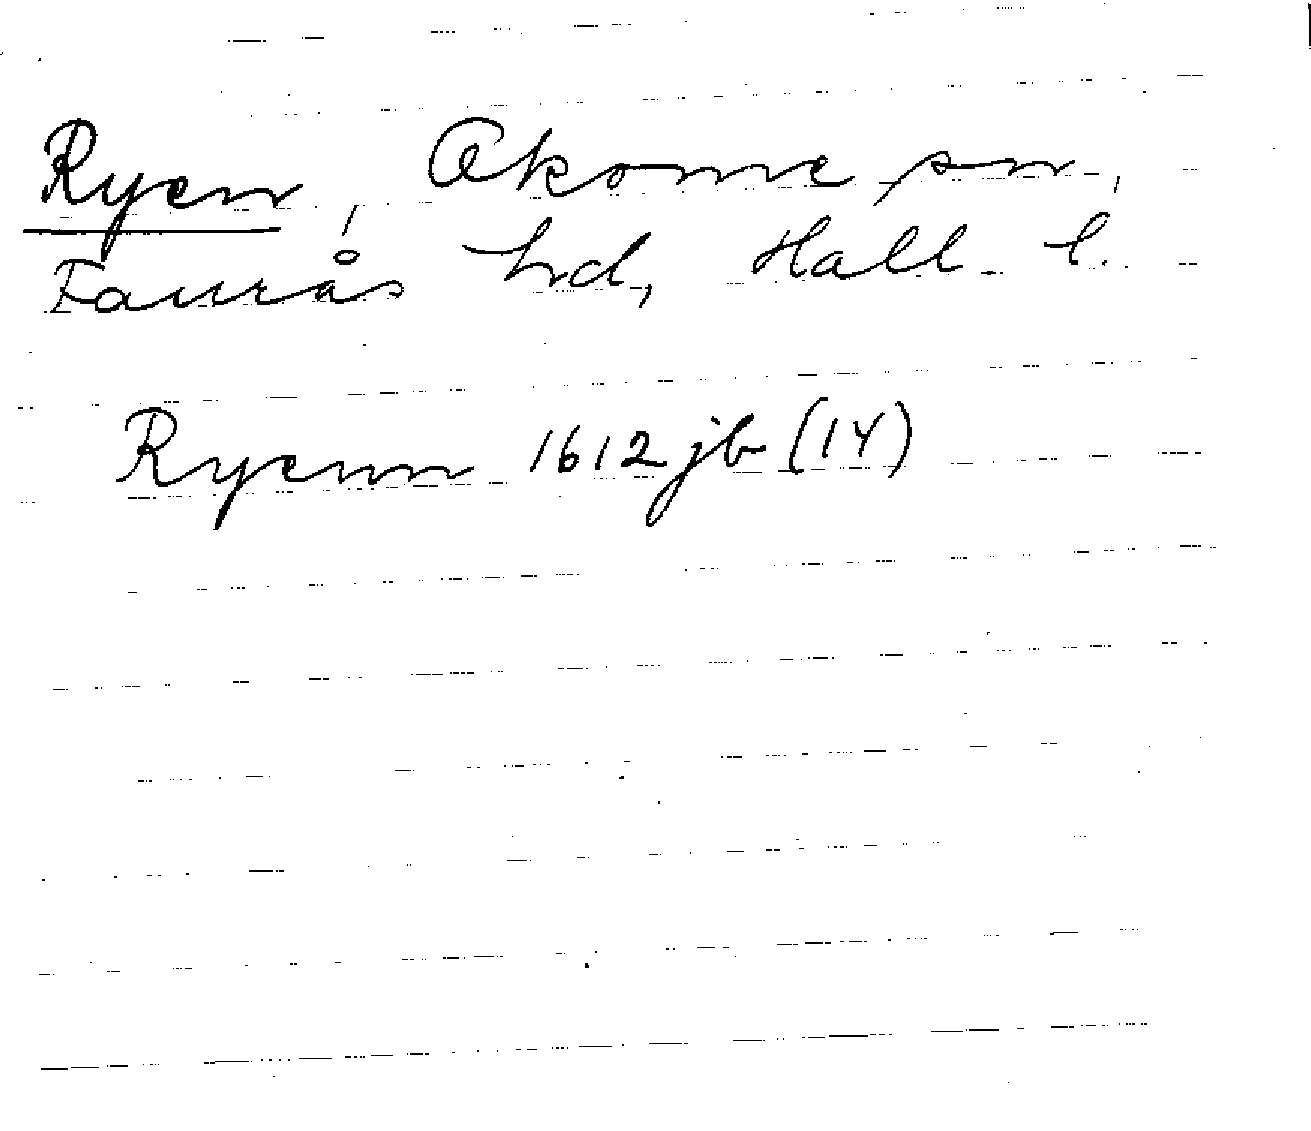 Ryen, Okome sn,
Faurås hd, Hall. l.
Ryenn 1612 jb (14)